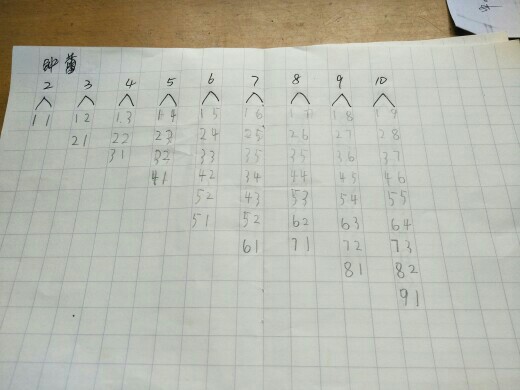 2 3 4 5 6 7 8 9 10
11 12 13 14 15 16 17 18 19
21 22 23 24 25 26 27 28
31 32 33 35 35 36 37
41 42 34 44 45 46
52 43 53 54 55
51 52 62 63 64
61 71 72 73
81 82
91